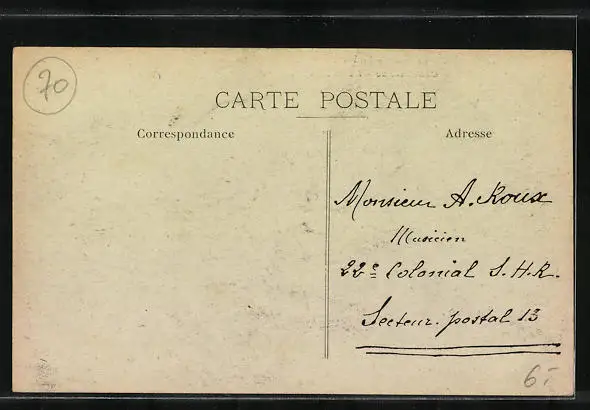 70
CARTE POSTALE
Correspondance
Adresse
Monsieur A. Roux
Musicien
22e Colonial S.H.R.
Secteur postal 13
6.-